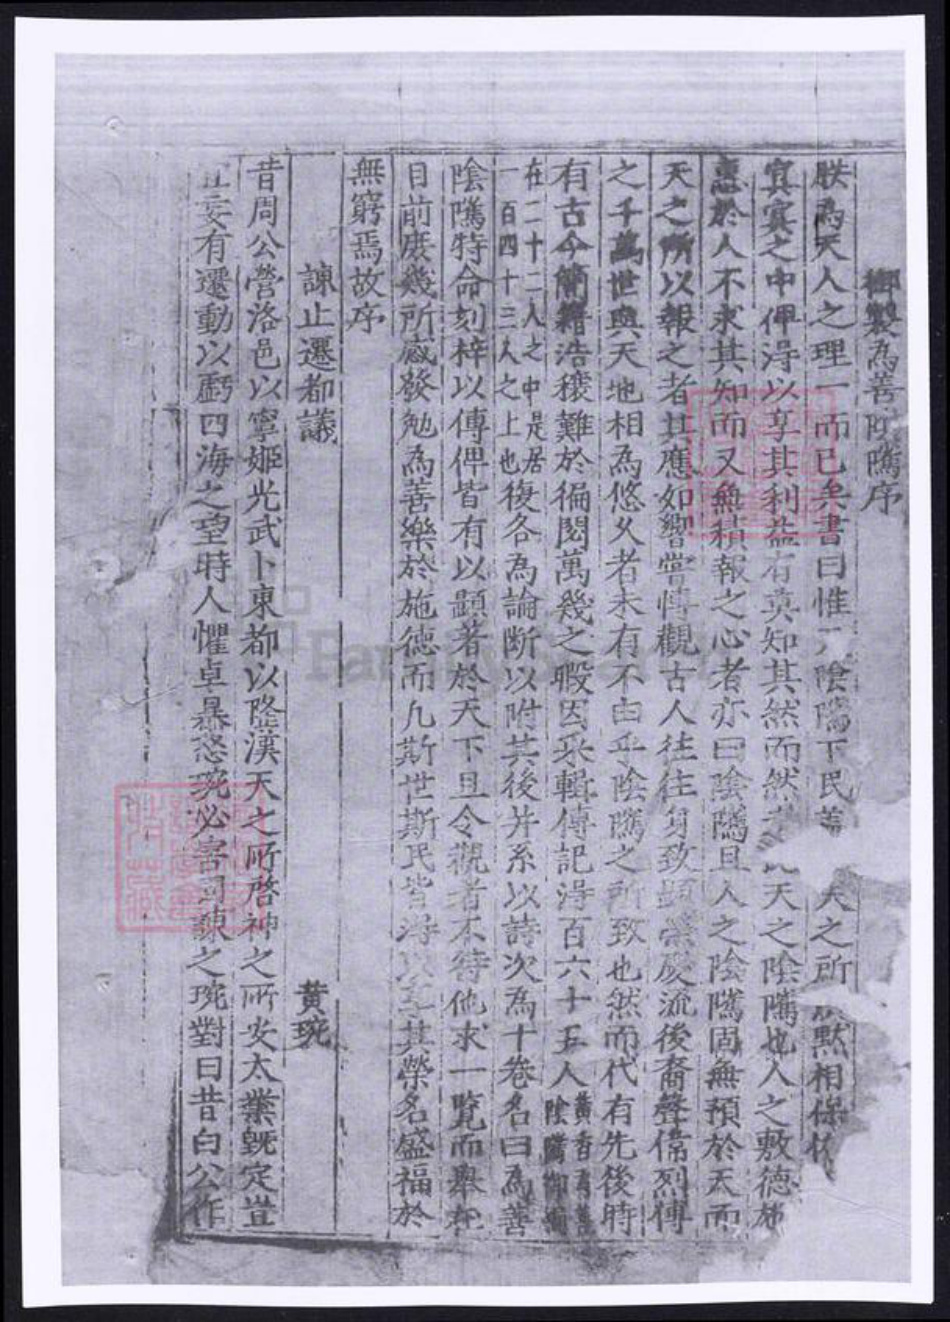 御製為善陰隲序
朕為天人之理一而已矣書曰惟 陰隲下民 天之所 默相保
冥冥之中俾淂以享其利益有莫知其然而然 此天之陰隲也人之敷德施
惠於人不求其知而又無積報之心者亦曰陰隲且人之陰隲固無預於天而
天之所以報之者其應如響嘗博觀古人往往身致顯榮慶流後裔聲偹烈傳
之千萬世與天地相為悠久者未有不由乎陰隲之所致也然而代有先後時
有古今簡籍浩穰難於徧閱萬幾之暇因采輯傳記淂百六十五人黃香
在二十二人之中是居一百四十三人之上也復各為論斷以附其後并系以詩次為十卷名曰為善
陰隲特命刻梓以傳俾皆有以顯著於天下且令觀者不待他求一覧而舉在
目前庶幾所感發勉為善樂於施德而凡斯世斯民皆淂以享其榮名盛福於
無窮焉故序
諫止遷都議
黃琬
昔周公營洛邑以寧姬光武卜東都以隆漢天之所啓神之所安大業既定豈
宜妄有遷動以虧四海之望時人懼卓暴怒琬必害固諫之琬對曰昔白公作